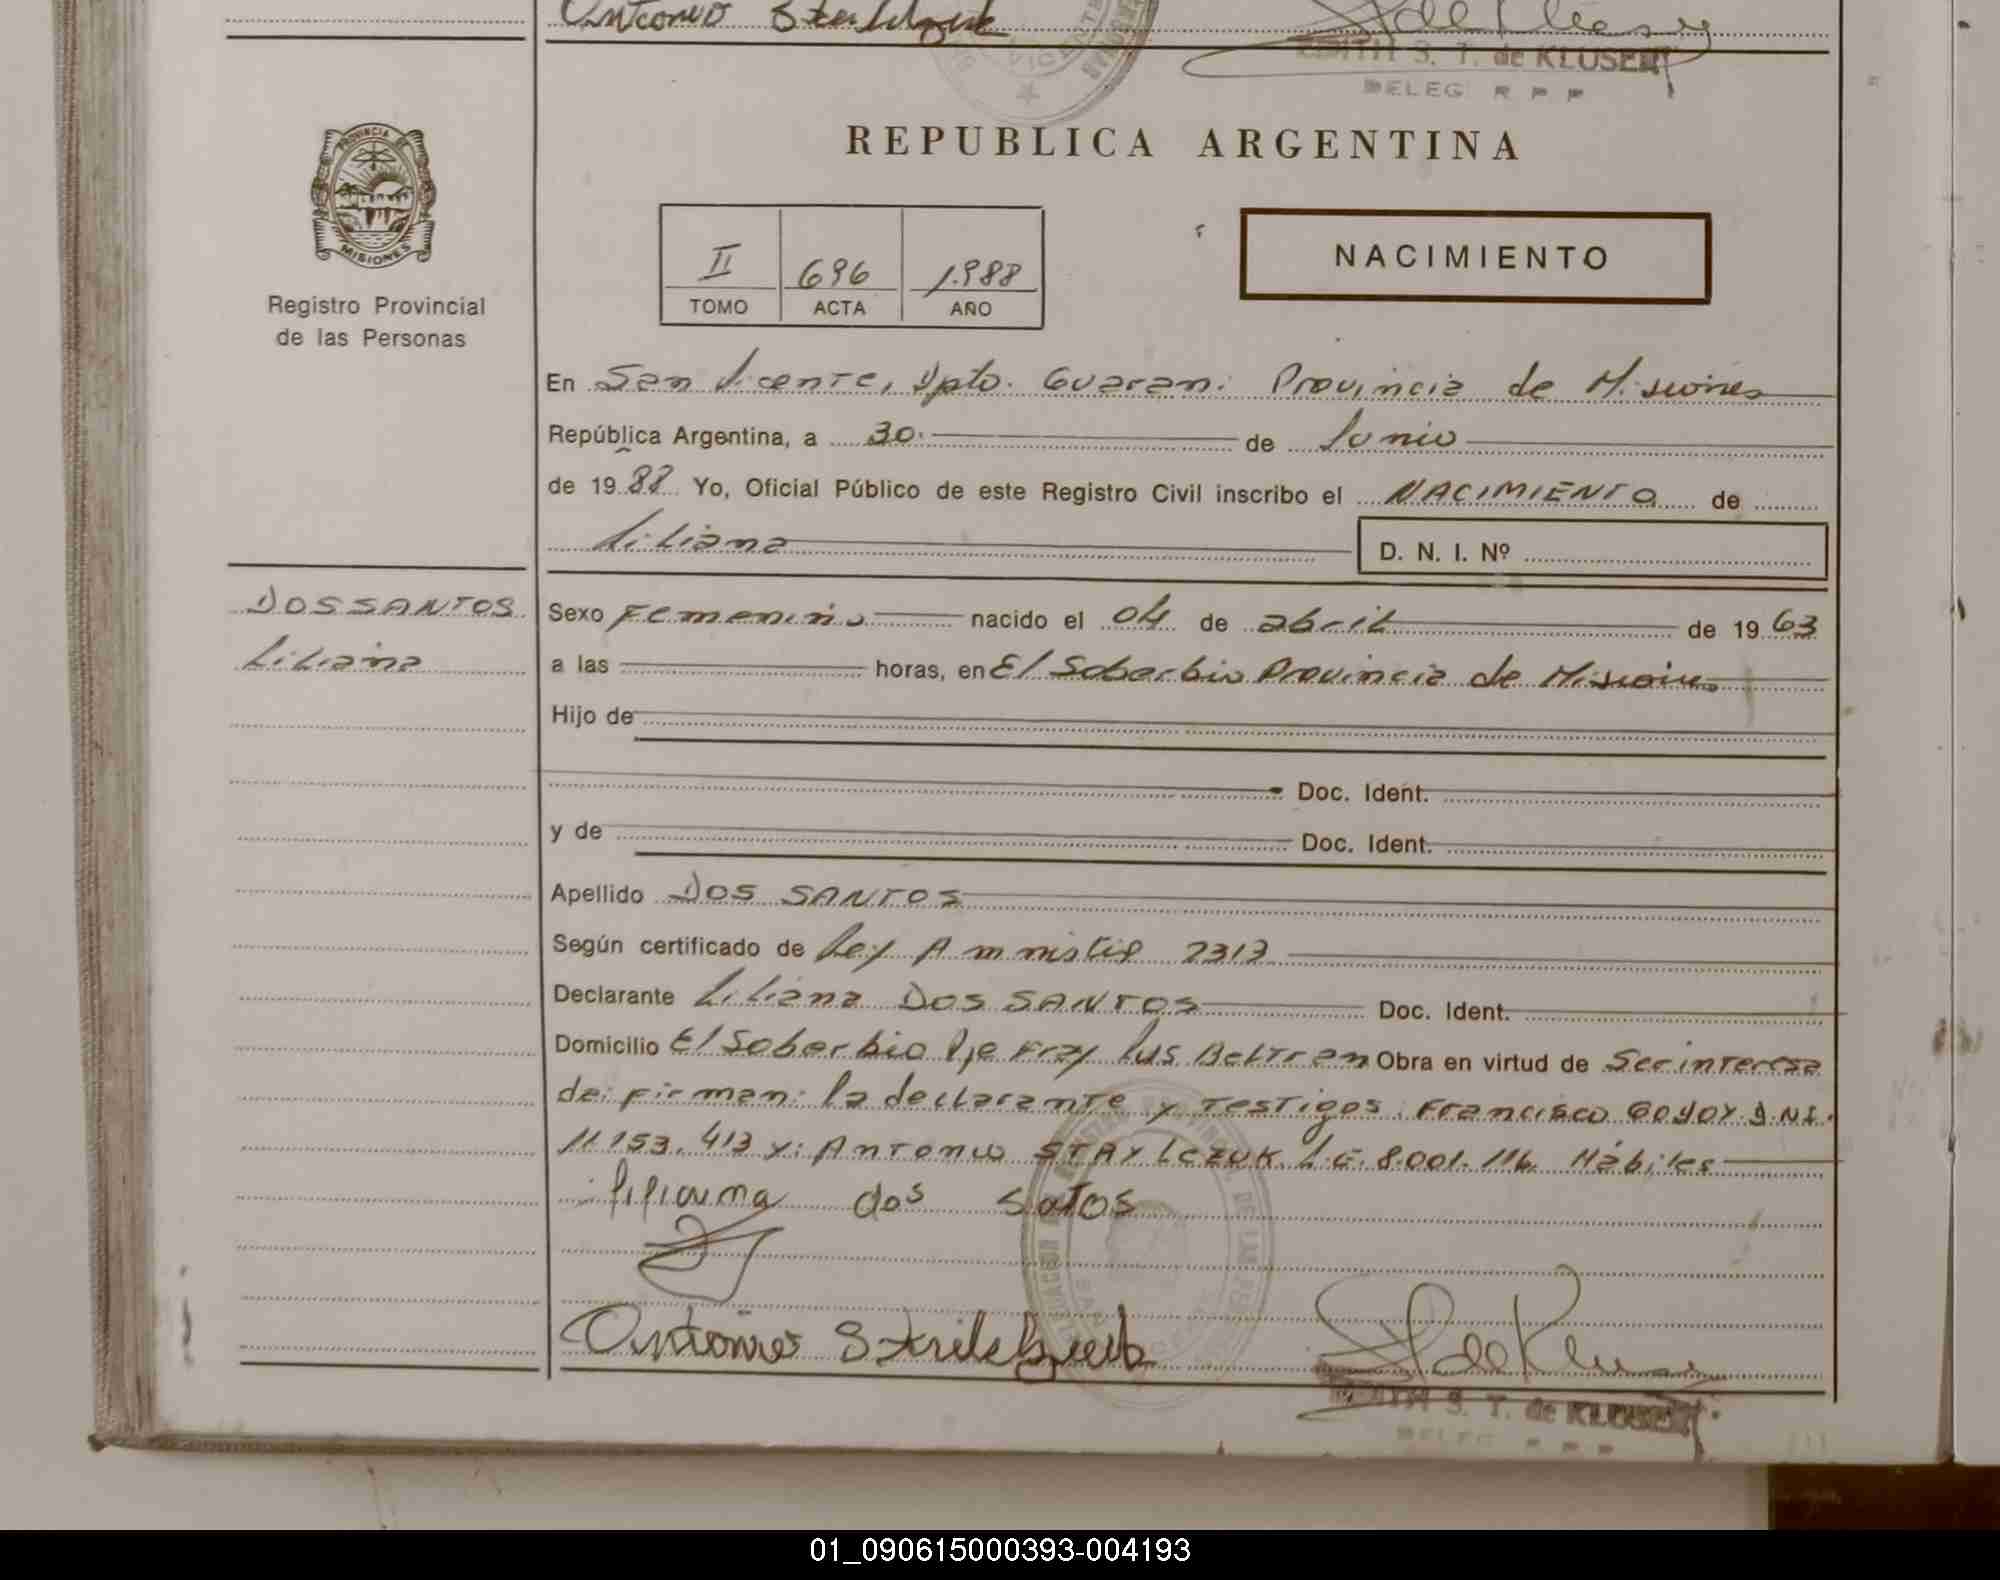 Antonio
EDITH S. T. de KLUSENER
DELEG. R P P
PROVINCIA DE
MISIONES
Registro Provincial
de las Personas
REPUBLICA ARGENTINA
II 696 1.988
TOMO ACTA AÑO
NACIMIENTO
En San Vicente, Dpto. Guarani Provincia de Misiones
República Argentina, a 30. de Junio
de 1988 Yo, Oficial Público de este Registro Civil inscribo el NACIMIENTO de
Liliana D. N. I. Nº
DOS SANTOS
Liliana
Sexo Femenino nacido el 04 de abril de 1963
a las horas, en El Soberbio Provincia de Misiones
Hijo de
Doc. Ident.
y de Doc. Ident.
Apellido DOS SANTOS
Según certificado de Ley Amnistia 2313
Declarante Liliana DOS SANTOS Doc. Ident.
Domicilio El Soberbio Pje Fray Luis Beltran Obra en virtud de Ser interesa
da: firman: la declarante y testigos: Francisco Godoy D.N.I.
11.153.413 y: Antonio STAYLCZUK L.E. 8.001.116 Hábiles
liliauma dos satos
Antonio
EDITH S. T. de KLUSENER
DELEG. R P P
01_090615000393-004193